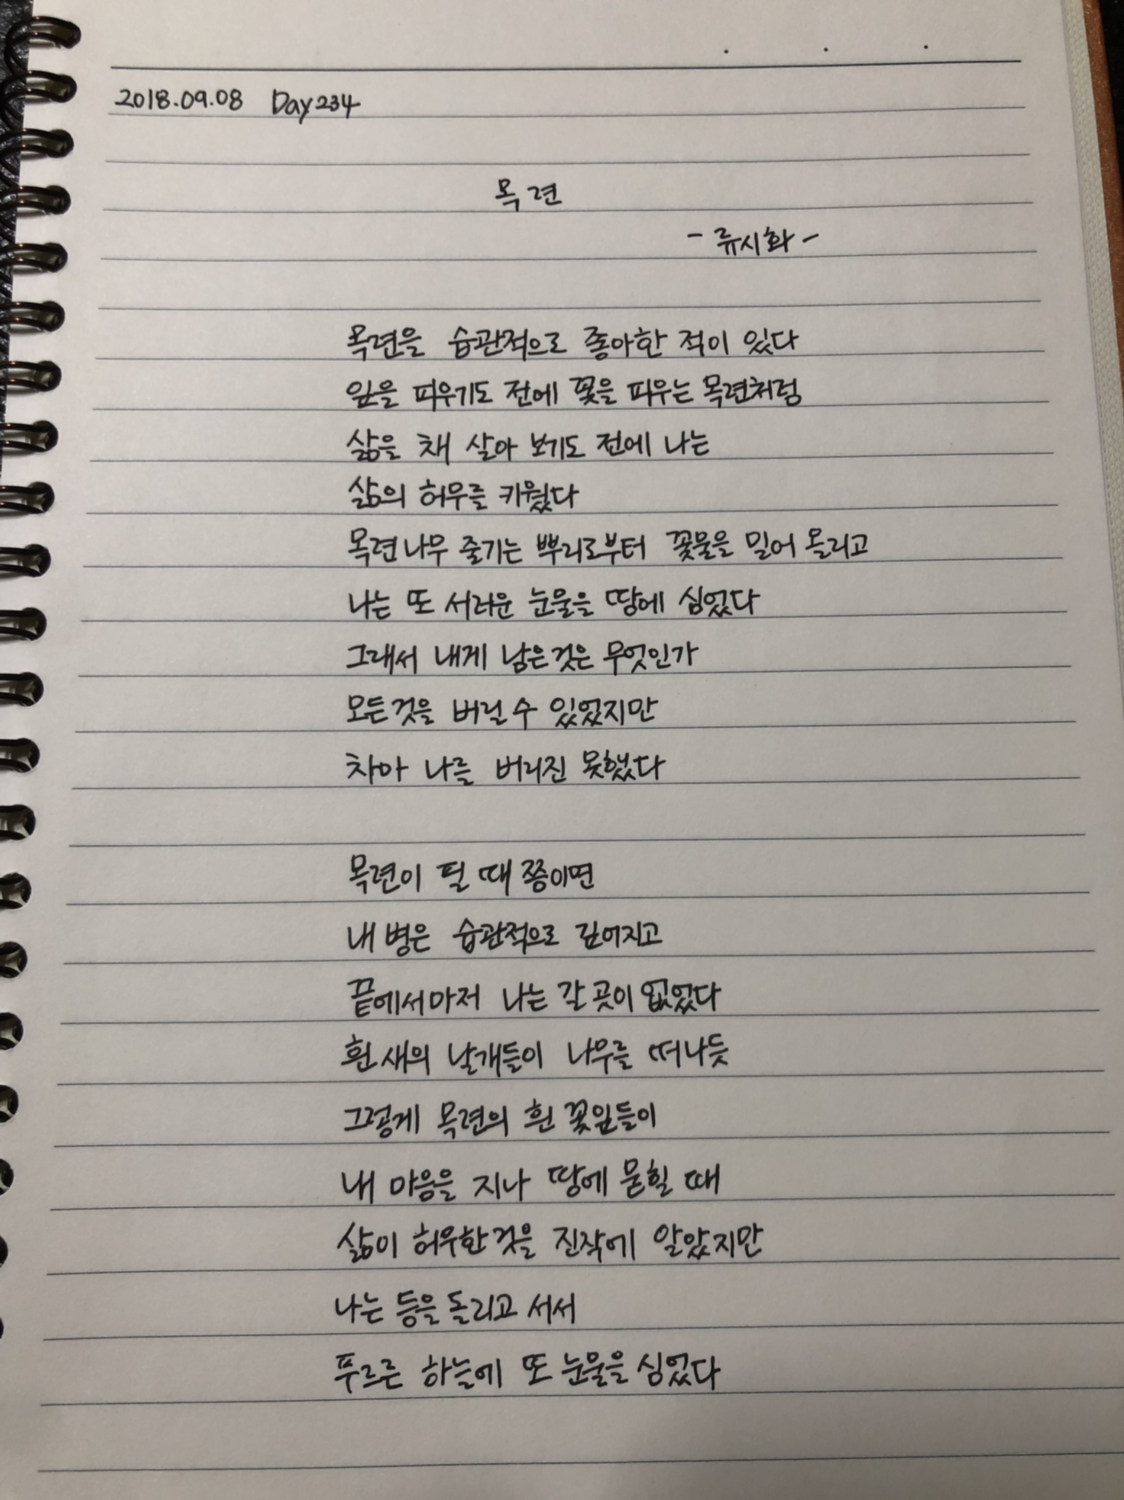 2018.09.08 Day234
목련
- 류시화 -
목련을 습관적으로 좋아한 적이 있다
잎을 피우기도 전에 꽃을 피우는 목련처럼
삶을 채 살아 보기도 전에 나는
삶의 허무를 키웠다
목련나무 줄기는 뿌리로부터 꽃물을 밀어 올리고
나는 또 서러운 눈물을 땅에 심었다
그래서 내게 남은것은 무엇인가
모든것을 버릴수 있었지만
차마 나를 버리진 못했다
목련이 필 때쯤이면
내 병은 습관적으로 깊어지고
끝에서마저 나는 갈 곳이 없었다
흰새의 날개들이 나무를 떠나듯
그렇게 목련의 흰 꽃잎들이
내 마음을 지나 땅에 묻힐 때
삶이 허무한것을 진작에 알았지만
나는 등을 돌리고 서서
푸르른 하늘에 또 눈물을 심었다